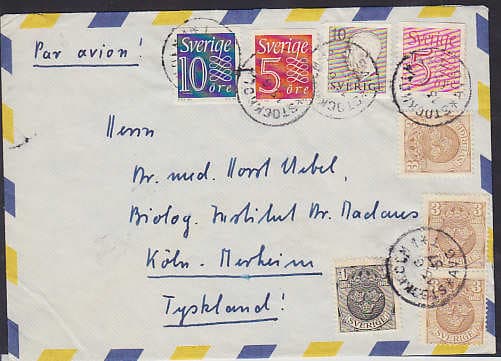 Par avion!
Sverige
10
öre
Sverige
5
öre
10
SVERIGE
5
3
3
3
1
SVERIGE
Herrn
Dr. med. Horst Uebel,
Biolog. Institut Dr. Madaus
Köln-Merheim
Tyskland!